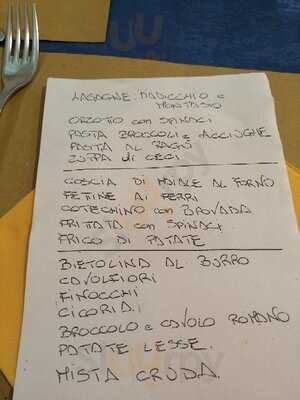 LASAGNE: RADICCHIO e
MONTASIO
ORZOTTO con SPINACI
PASTA BROCCOLI e ACCIUGHE
PASTA AL RAGÙ
ZUPPA di CECI
COSCIA DI MAIALE AL FORNO
FETTINE AI FERRI
COTECHINO con BROVADA
FRITTATA con SPINACI
FRICO DI PATATE
BIETOLINA AL BURRO
CAVOLFIORI
FINOCCHI
CICORIA.
BROCCOLO e CAVOLO ROMANO
PATATE LESSE.
MISTA CRUDA.